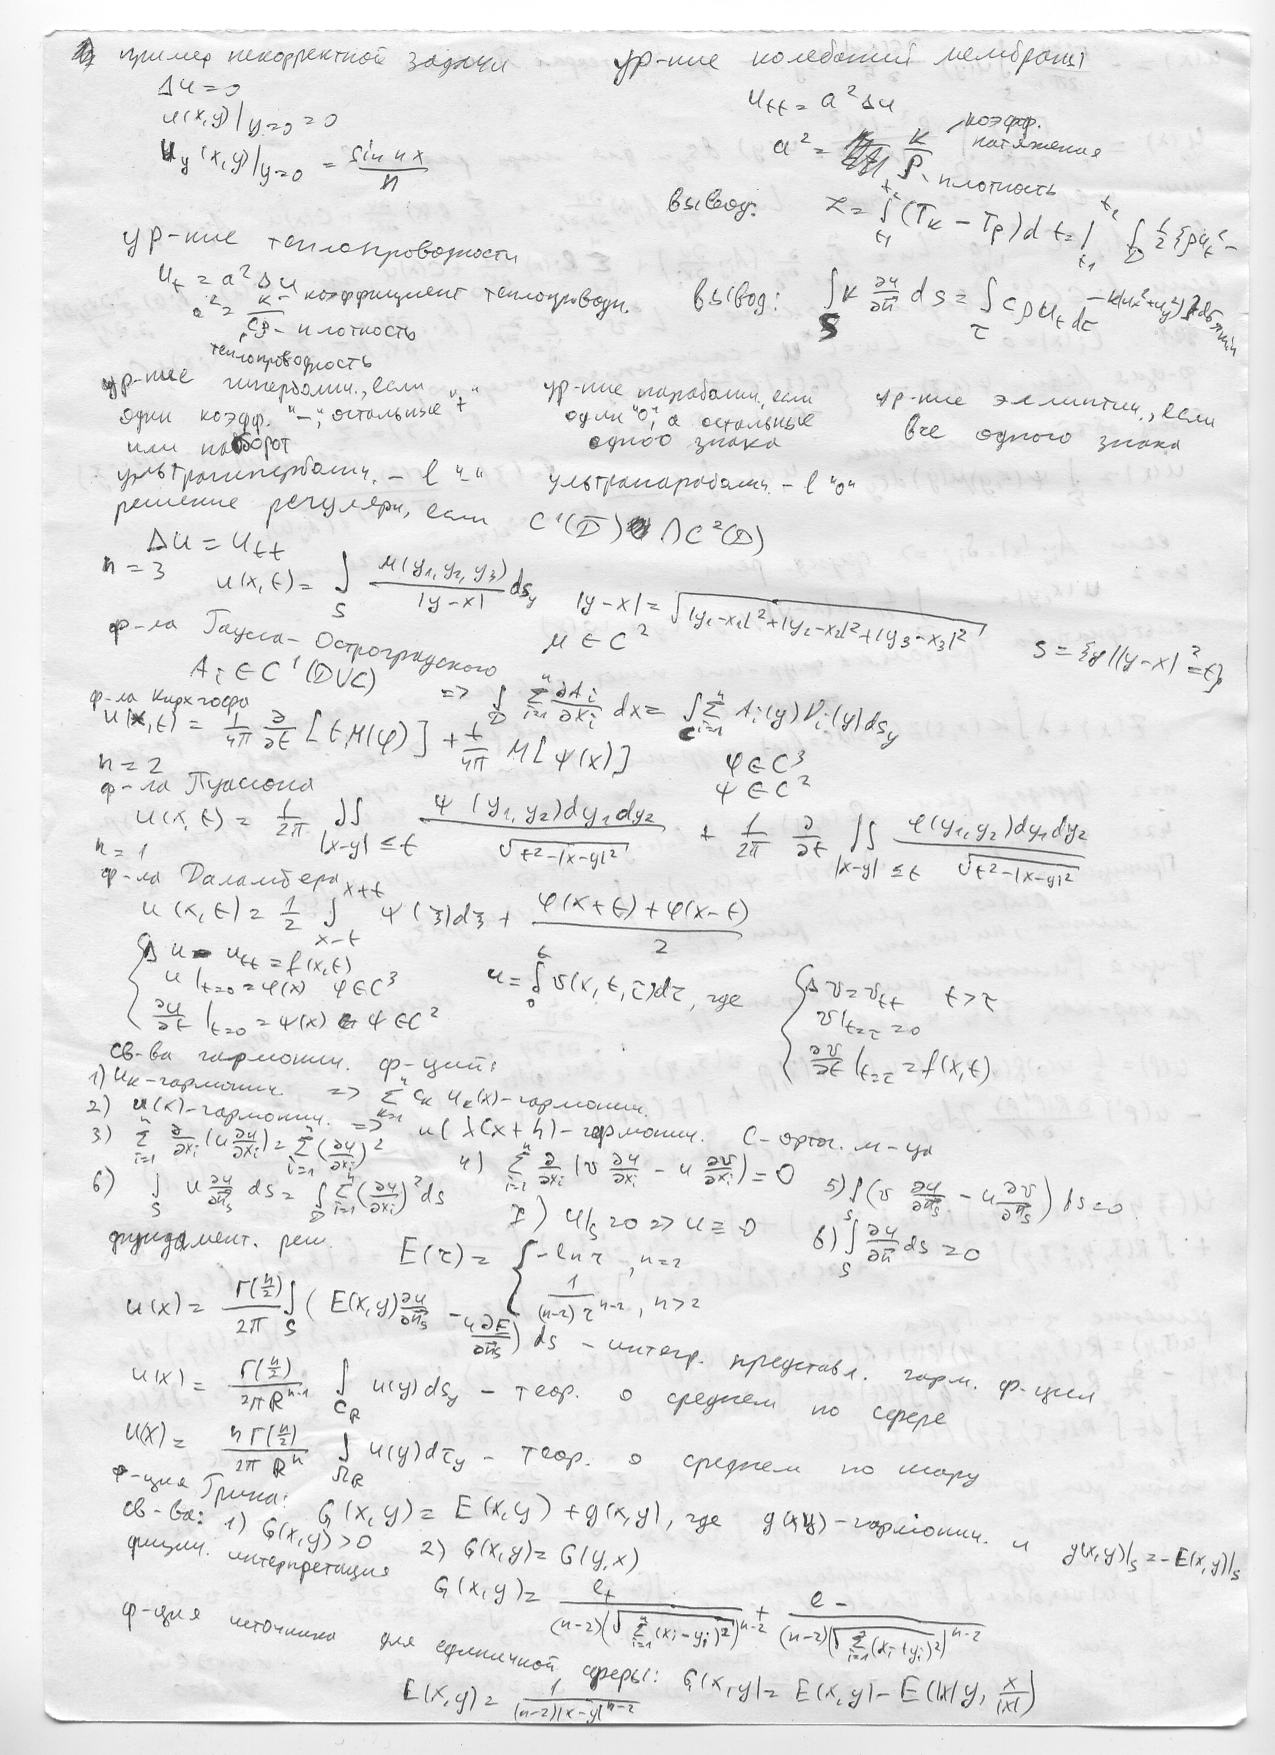 пример некорректной задачи
Δu=0
u(x,y)|y=0 =0
uy(x,y)|y=0 = sin nx / n
ур-ние колебаний мембраны
utt = a²Δu
a² = k/ρ
коэфф. натяжения
плотность
вывод: L = ∫t1^t2 (Tк – Tр)dt = ∫t1^t2 ∫D ½ {ρut² –
– k(ux²+uy²)}
ур-ние теплопроводности
ut = a²Δu
a² = k/cρ – коэффициент теплопроводн.
– плотность
теплопроводность
вывод: ∫S k ∂u/∂n ds = ∫τ cρ ut dτ
ур-ние гиперболич., если
один коэфф. "–", остальные "+"
или наоборот
ур-ние параболич., если
один "0", а остальные
одного знака
ур-ние эллиптич., если
все одного знака
ультрагиперболич. – l "–"
ультрапараболич. – l "0"
решение регулярн, если C¹(D̄) ∩ C²(D)
Δu = utt
n=3
u(x,t) = ∫S μ(y1,y2,y3)/|y–x| dsy
|y–x| = √|y1–x1|²+|y2–x2|²+|y3–x3|²
μ ∈ C²
S = {y||y–x|²=t}
ф-ла Гаусса-Остроградского
Ai ∈ C¹(D∪C) => ∫D Σi=1^n ∂Ai/∂xi dx = ∫C Σi=1^n Ai(y)νi(y)dsy
ф-ла Кирхгофа
u(x,t) = 1/4π ∂/∂t [tM(φ)] + t/4π M[ψ(x)]
φ∈C³
ψ∈C²
n=2
ф-ла Пуассона
u(x,t) = 1/2π ∬|x–y|≤t ψ(y1,y2)dy1dy2 / √t²–|x–y|² + 1/2π ∂/∂t ∬|x–y|≤t φ(y1,y2)dy1dy2 / √t²–|x–y|²
n=1
ф-ла Даламбера
u(x,t) = 1/2 ∫x–t^x+t ψ(ξ)dξ + φ(x+t)+φ(x–t) / 2
{ Δu – utt = f(x,t)
u|t=0 = φ(x) φ∈C³
∂u/∂t|t=0 = ψ(x) ψ∈C²
u = ∫0^t v(x,t,τ)dτ, где
{ Δv = vtt t>τ
v|t=τ =0
∂v/∂t|t=τ = f(x,τ)
св-ва гармонич. ф-ций:
1) uk-гармонич. => Σk=1^n ck uk(x)-гармонич.
2) u(x)-гармонич. => u(λCx+h)-гармонич. C-ортог. м-ца
3) Σi=1^n ∂/∂xi (u ∂u/∂xi) = Σi=1^n (∂u/∂xi)²
4) Σi=1^n ∂/∂xi (v ∂u/∂xi – u ∂v/∂xi) = 0
5) ∫S (v ∂u/∂ns – u ∂v/∂ns) ds=0
6) ∫S u ∂u/∂ns ds = ∫D Σi=1^n (∂u/∂xi)² ds
7) u|s=0 => u≡0
6) ∫S ∂u/∂n ds =0
фундамент. реш. E(τ) = { –ln τ, n=2
1/(n–2)τ^n–2, n>2
u(x) = Γ(n/2)/2π ∫S (E(x,y) ∂u/∂ns – u ∂E/∂ns) ds – интегр. представл. гарм. ф-ции
u(x) = Γ(n/2)/2πR^n–1 ∫CR u(y)dsy – теор. о среднем по сфере
u(x) = nΓ(n/2)/2πR^n ∫ΩR u(y)dτy – теор. о среднем по шару
ф-ция Грина: G(x,y) = E(x,y)+g(x,y), где g(x,y)-гармонич. и g(x,y)|s=–E(x,y)|s
св-ва: 1) G(x,y)>0 2) G(x,y)=G(y,x)
физич. интерпретация
G(x,y) = e+ / (n–2)(√Σi=1^n (xi–yi)²)^n–2 + e– / (n–2)(√Σi=1^n (xi+yi)²)^n–2
ф-ция источника для единичной сферы: G(x,y) = E(x,y) – E(|x|y, x/|x|)
E(x,y) = 1/(n–2)|x–y|^n–2